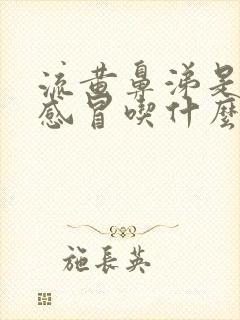 流黄鼻涕是
感冒喫什麼
施長英